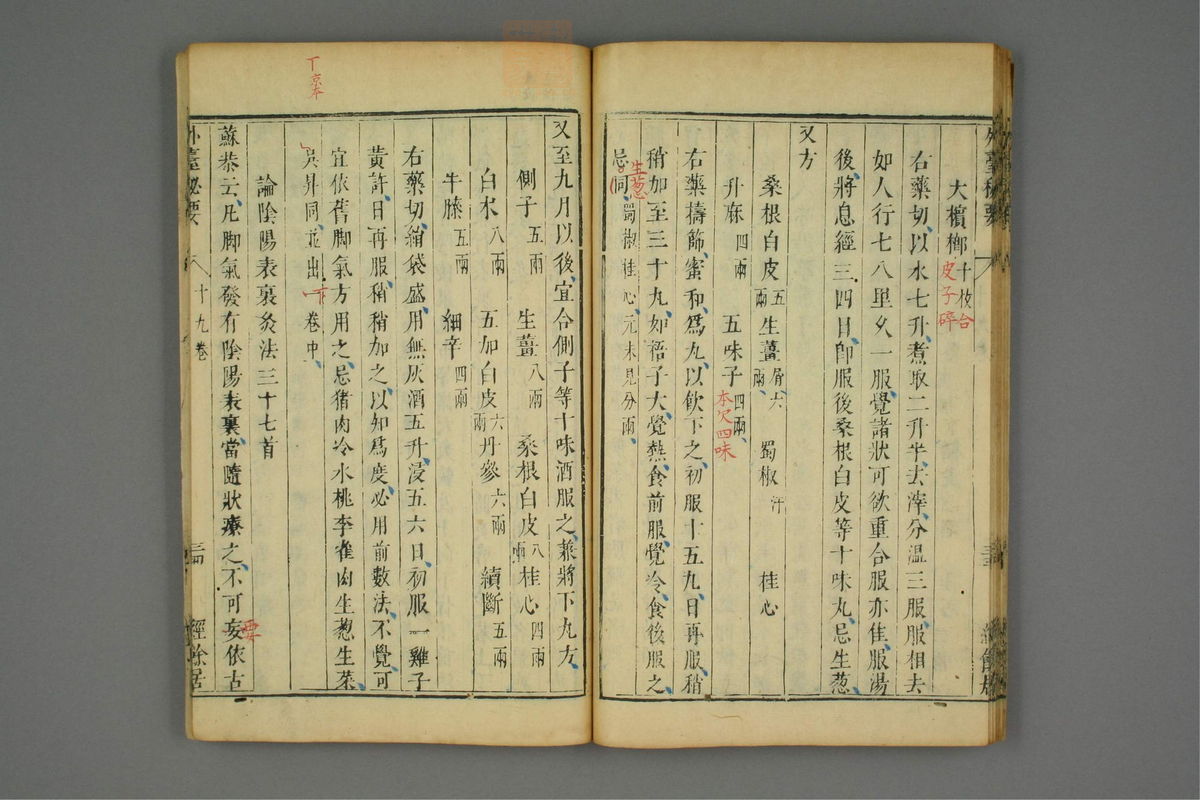 大檳榔十枚合皮子碎
右藥切、以水七升、煮取二升半、去滓、分溫三服、服相去
如人行七八里久一服、覺諸狀可欲重合服亦佳、服湯
後、將息經三四日、卽服後桑根白皮等十味丸、忌生葱、
又方
桑根白皮五兩 生薑屑六兩 蜀椒汗 桂心
升麻四兩 五味子四兩、本欠四味
右藥擣篩、蜜和、爲丸、以飲下之、初服十五丸、日再服、稍
稍加至三十丸、如梧子大、覺熱、食前服、覺冷、食後服之、
忌同、生葱蜀椒桂心元未見分兩、
又至九月以後、宜合側子等十味酒服之、兼將下丸方、
側子五兩 生薑八兩 桑根白皮八兩 桂心四兩
白朮八兩 五加白皮六兩 丹參六兩 續斷五兩
牛膝五兩 細辛四兩
右藥切、絹袋盛、用無灰酒五升、浸五六日、初服一雞子
黃許、日再服、稍稍加之、以知爲度、必用前數法、不覺、可
宜依舊脚氣方用之、忌猪肉冷水桃李雀肉生葱生菜、
吳昇同、並出下卷中、
丁京本
論陰陽表裏灸法三十七首
蘇恭云、凡脚氣發有陰陽表裏、當隨狀療之、不可妄依古
要
外臺秘要 十九卷 三四 經餘居